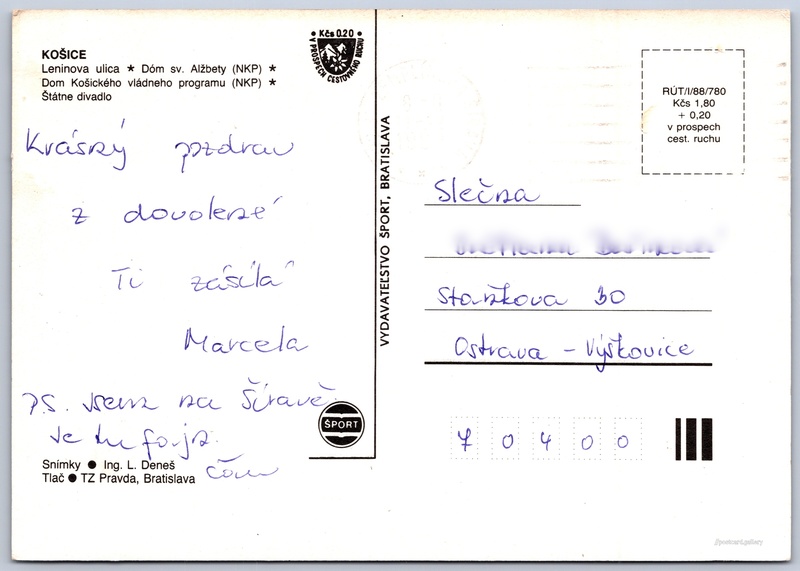 KOŠICE
Leninova ulica * Dóm sv. Alžbety (NKP) *
Dom Košického vládneho programu (NKP) *
Štátne divadlo
Kčs 0.20
V PROSPECH CESTOVNÉHO RUCHU
Krásný pozdrav
z dovolené
Ti zasílá
Marcela
P.S. jsem na Šíravě
je tu fajn
čau
ŠPORT
Snímky ● Ing. L. Deneš
Tlač ● TZ Pravda, Bratislava
VYDAVATEĽSTVO ŠPORT, BRATISLAVA
RÚT/I/88/780
Kčs 1,80
+ 0,20
v prospech
cest. ruchu
Slečna
Staňkova 30
Ostrava - Výškovice
70400